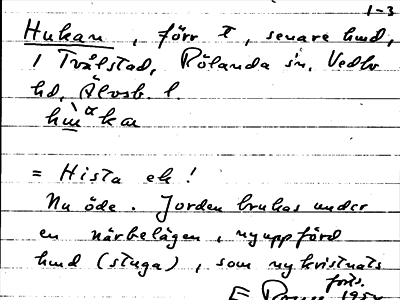 1-3
Hukan, förr t, senare hmd,
i Tvålstad, Rölanda sn, Vedbo
hd, Älvsb. l.
= Hista ek!
Nu öde. Jorden brukas under
en närbelägen, nyuppförd
hmd (stuga), som nykvistnats
forts.